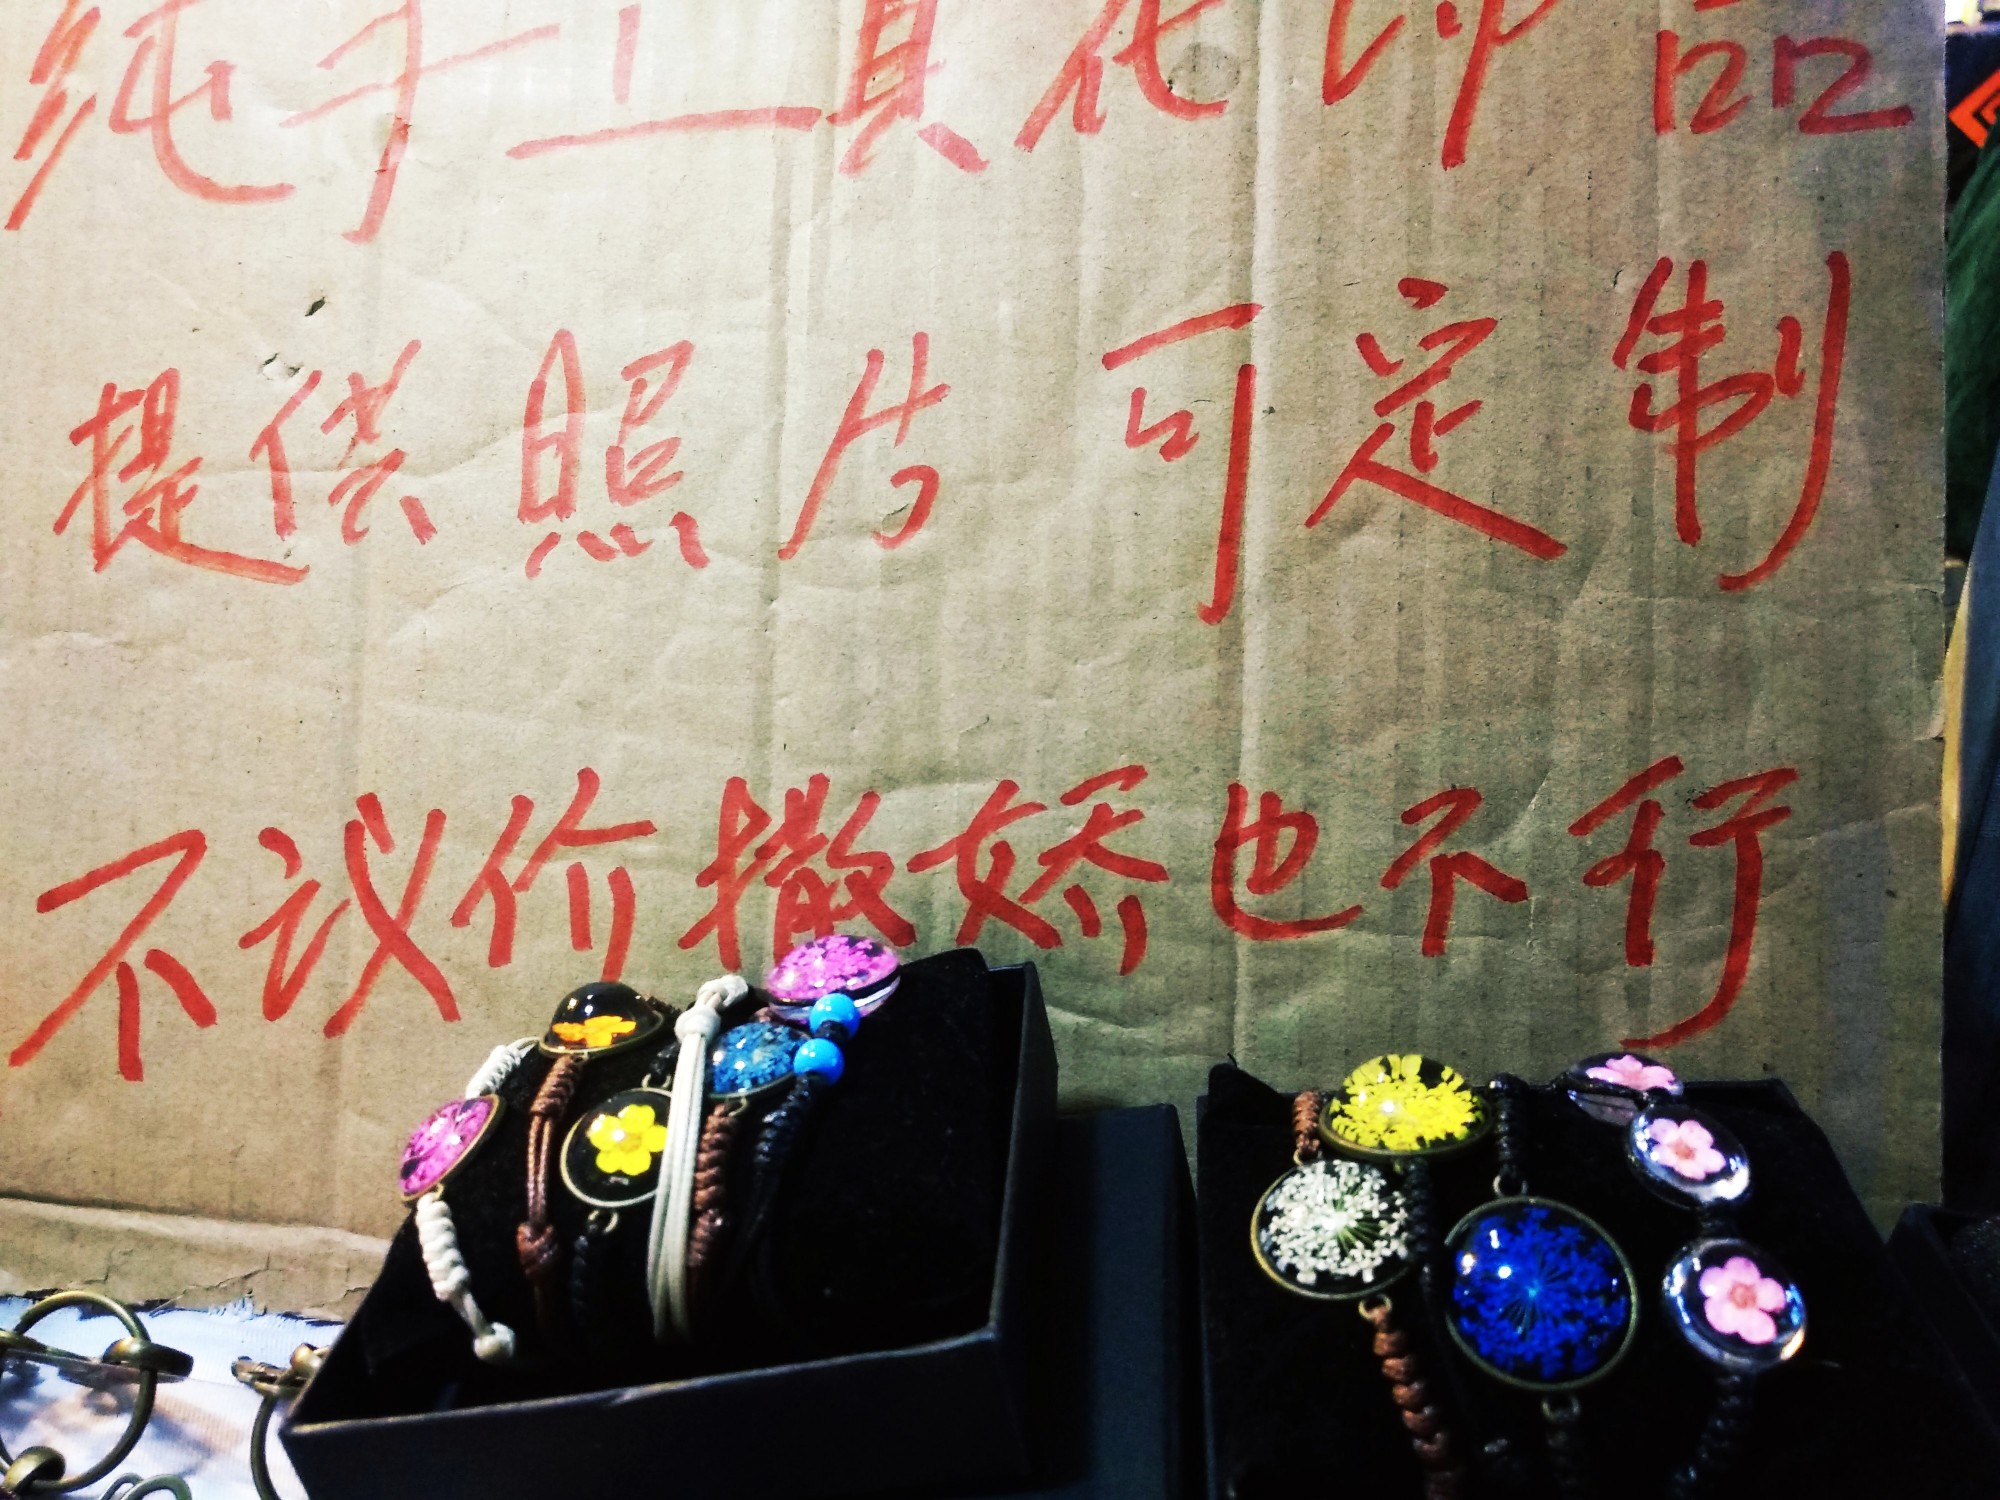 纯手工真花饰品
提供照片可定制
不议价撒娇也不行